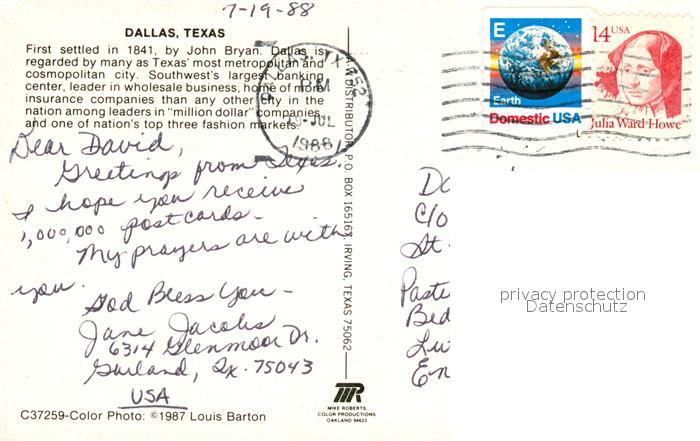 7-19-88
DALLAS, TEXAS
First settled in 1841, by John Bryan. Dallas is
regarded by many as Texas' most metropolitan and
cosmopolitan city. Southwest's largest banking
center, leader in wholesale business, home of more
insurance companies than any other city in the
nation among leaders in "million dollar" companies
and one of nation's top three fashion markets.
Dear David,
Greetings from Texas.
I hope you receive
1,000,000 postcards.
My prayers are with
you.
God Bless You -
Jane Jacobs
6314 Glenmoor Dr.
Garland, Tx. 75043
USA
C37259-Color Photo: ©1987 Louis Barton
DISTRIBUTOR, P.O. BOX 165167, IRVING, TEXAS 75062
MIKE ROBERTS
COLOR PRODUCTIONS
OAKLAND 94623
TX 752
PM
19 JUL
1988
E
Earth
Domestic USA
14 USA
Julia Ward Howe
C/o
St.
Paste
Bed
Lu
En
privacy protection
Datenschutz